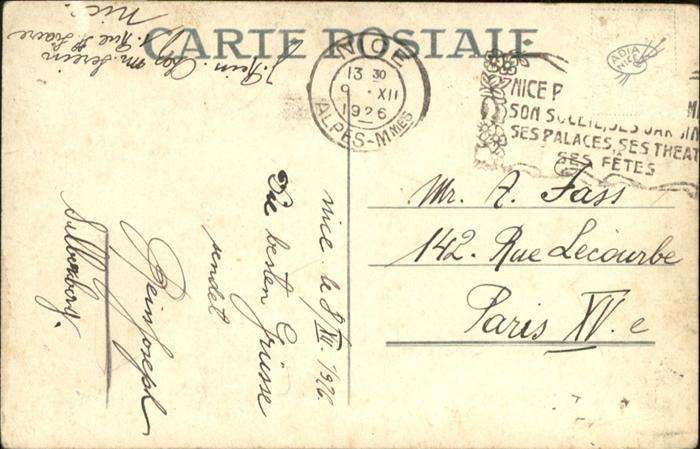 CARTE POSTALE
Nice
NICE
13 30
9 · XII
1926
ALPES-MMES
ADIA
NICE
NICE P
SON SOLEIL, SES JARDIN
SES PALACES, SES THEAT
SES FÊTES
Mr. A. Fass
142. Rue Lecourbe
Paris XV. e
nice le 8/XII. 1926.
Die besten Grüsse
sendet
Dein Joseph